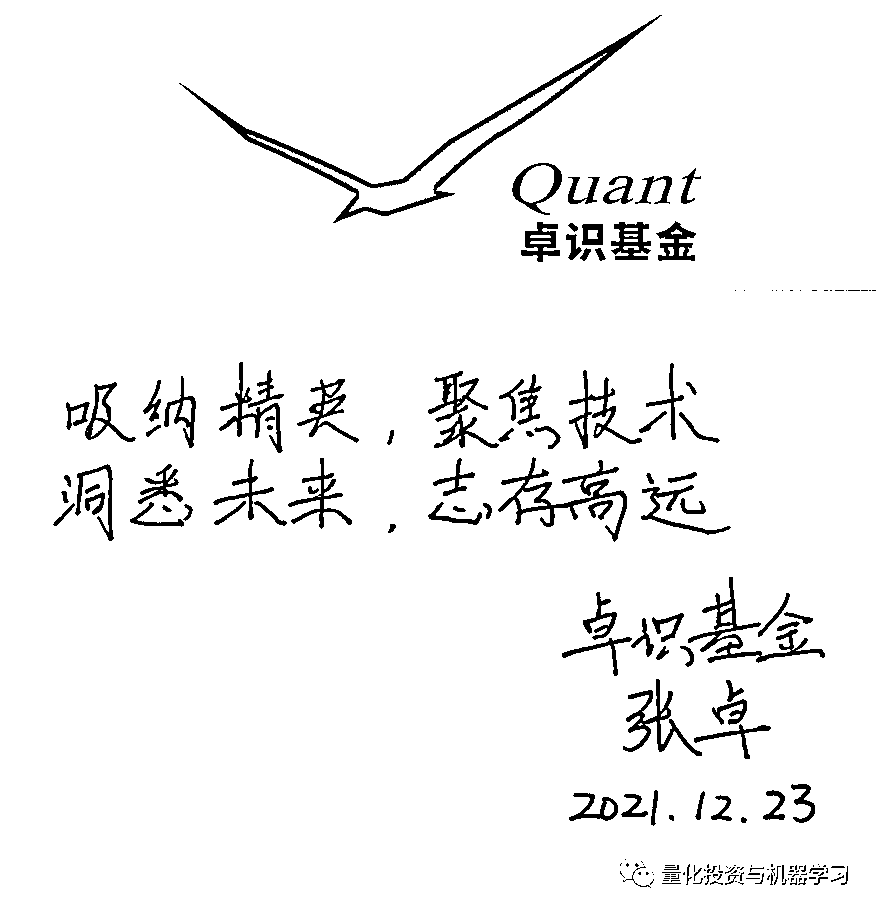 Quant
卓识基金
吸纳精英，聚焦技术
洞悉未来，志存高远
卓识基金
张卓
2021.12.23
量化投资与机器学习